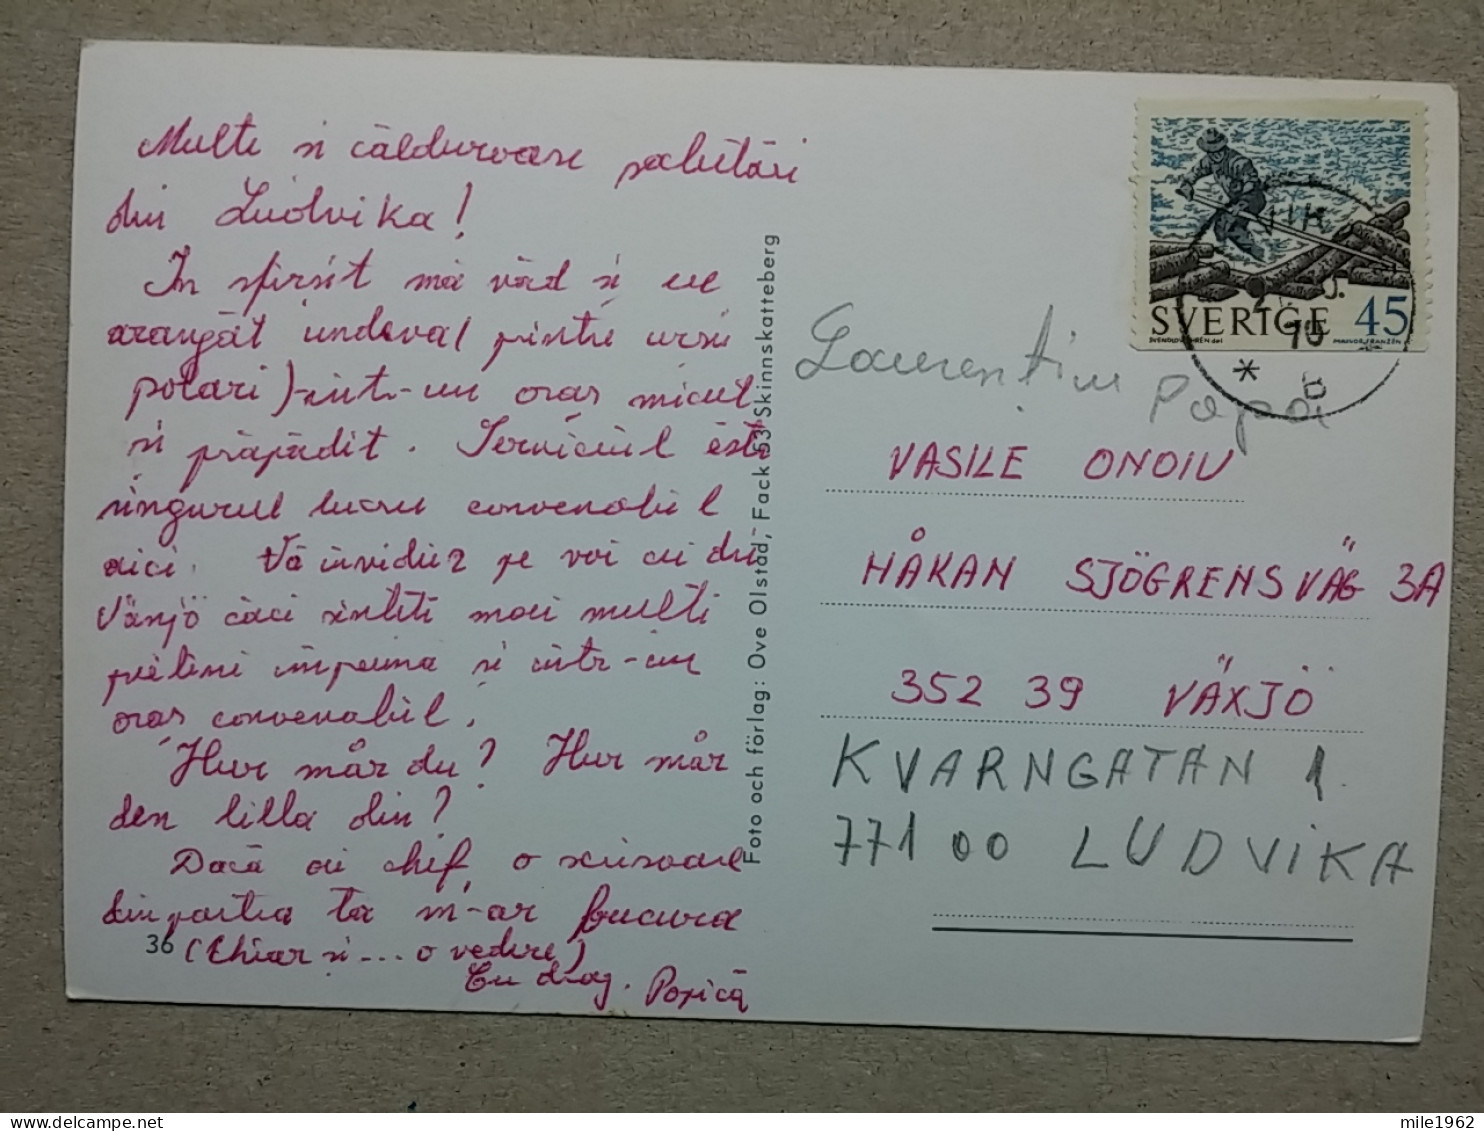 Multe si călduroase salutări
din Ludvika!
In sfirsit mă văd si eu
aranjat undeva (printre ursii
polari) într-un oras micut
si prăpădit. Serviciul este
singurul lucru convenabil
aici. Vă invidiez pe voi cei din
Växjö căci sinteti mai multi
prieteni împeună si intr-un
oras convenabil.
Hur mår du? Hur mår
den lilla din?
Dacă ai chef, o scrisoare
din partea ta m-ar bucura
(Chiar si ... o vedere)
Cu drag. Popică
36
Foto och förlag: Ove Olstad, Fack 53 Skinnskatteberg
SVERIGE 45
* 70
Laurentiu
Popa
VASILE ONOIU
HÅKAN SJÖGRENS VÄG 3A
352 39 VÄXJÖ
KVARNGATAN 1.
771 00 LUDVIKA
mile1962